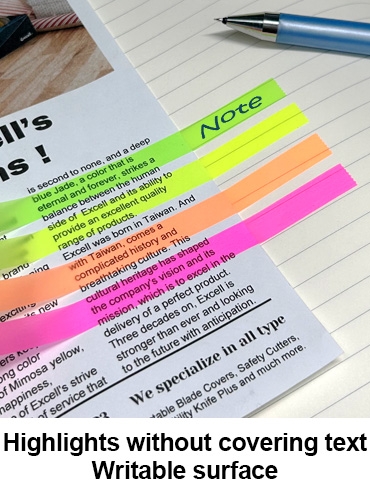 Note
ell's
ns !
is second to none, and a deep
blue Jade, a color that is
eternal and forever, strikes a
balance between the human
side of Excell and its ability to
provide an excellent quality
range of products.
Excell was born in Taiwan. And
with Taiwan, comes a
complicated history and
breathtaking culture. This
cultural heritage has shaped
the company's vision and its
mission, which is to excel in the
delivery of a perfect product.
Three decades on, Excell is
stronger than ever and looking
to the future with anticipation.
brand
exciting
s new
ong color
of Mimosa yellow,
happiness,
n of Excell's strive
of service that
We specialize in all type
table Blade Covers, Safety Cutters,
tility Knife Plus and much more.
Highlights without covering text
Writable surface